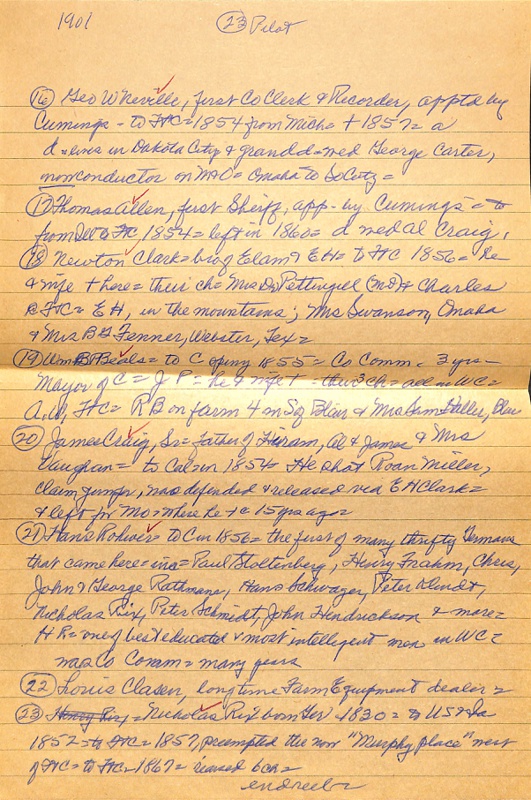 1901
(23) Pilot
(16) Geo W Neville, first Co Clerk & Recorder, apptd by
Cumings - to FtC = 1854 from Mich = + 1857 = a
d = lives in Dakota City & grandd = wed George Carter,
now conductor on = Omaha to So City =
(17) Thomas Allen, first Sheriff, app - by Cumings = to
from FtC, 1854 = left in 1860 = d wed Al Craig,
(18) Newton Clark = bro of Elam & EH = to FtC 1856 = he
& wife + here = their ch = Mrs Dr Pettingill (Mo) & Charles
FtC = EH, in the mountains; Mrs Swanson, Omaha
& Mrs B G Fenner, Webster, Tex =
(19) Wm B Beals = to C spring 1855 = Co Comm - 3 yrs -
Mayor of C = J P = he & wife + = their 3 ch = all in WC =
A.W, FtC = R B on farm 4 m S of Blair & Mrs Sam Haller, Blair
(20) James Craig, Sr = Father of Hiram, Al & James & Mrs
Vaughan = to Cal = in 1854 = He shot Roan Miller,
claim jumper, was defended & released via E H Clark =
& left for Mo = where he + c 15 yrs ago =
(21) Hans Rohwer = to C in 1856 = the first of many thrifty Germans
that came here = inc = Paul Stoltenberg, Henry Frahm, Chris,
John & George Rathmann, Hans Schwager, Peter
Nicholas Rix, Peter Schmidt, John Hendrickson & more =
H R = one of best educated & most intelligent men in WC =
was Co Comm = many years
(22) Louis Clasen, long time Farm Equipment dealer =
(23) Henry Rix = Nicholas Rix born Ger 1830 = to US & Ia
1852 = to FtC = 1857, preempted the now "Murphy place" west
of FtC = to FtC = 1867 = raised 6 ch =
endreeb =